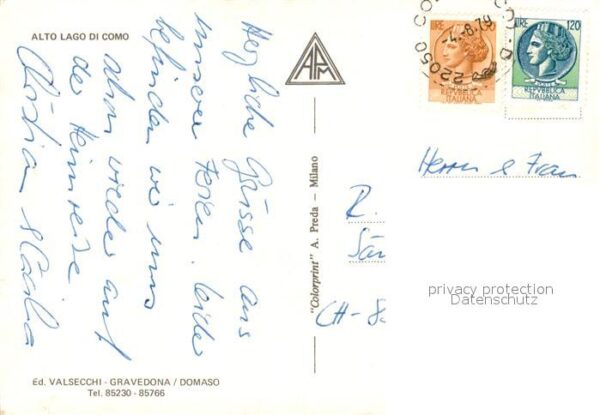 ALTO LAGO DI COMO
Herzliche Grüsse aus
unseren Ferien. Leider
befinden wir uns
schon wieder auf
der Heimreise
& Cecilia
Ed. VALSECCHI - GRAVEDONA / DOMASO
Tel. 85230 - 85766
APM
"Colorprint" A. Preda - Milano
LIRE
REPVBBLICA
ITALIANA
LIRE 120
REPVBBLICA
ITALIANA
22050 CO
-4.-8.79
Herrn & Frau
R.
CH-8
privacy protection
Datenschutz